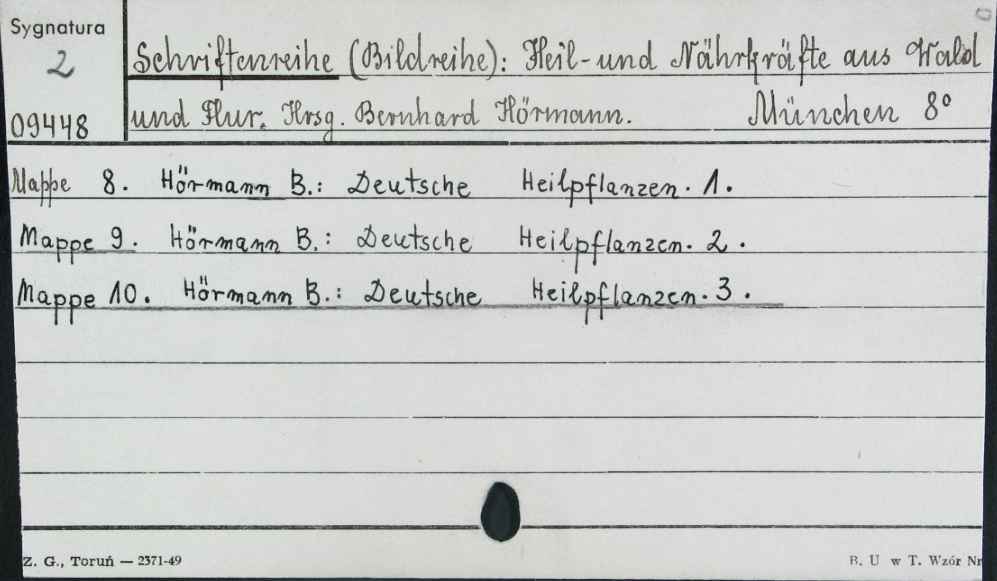 Sygnatura
2
09448
Schriftenreihe (Bildreihe): Heil- und Nährkräfte aus Wald
und Flur. Hrsg. Bernhard Hörmann. München 8°
Mappe 8. Hörmann B.: Deutsche Heilpflanzen. 1.
Mappe 9. Hörmann B.: Deutsche Heilpflanzen. 2.
Mappe 10. Hörmann B.: Deutsche Heilpflanzen. 3.
Z. G., Toruń — 2371-49
B. U w T. Wzór Nr